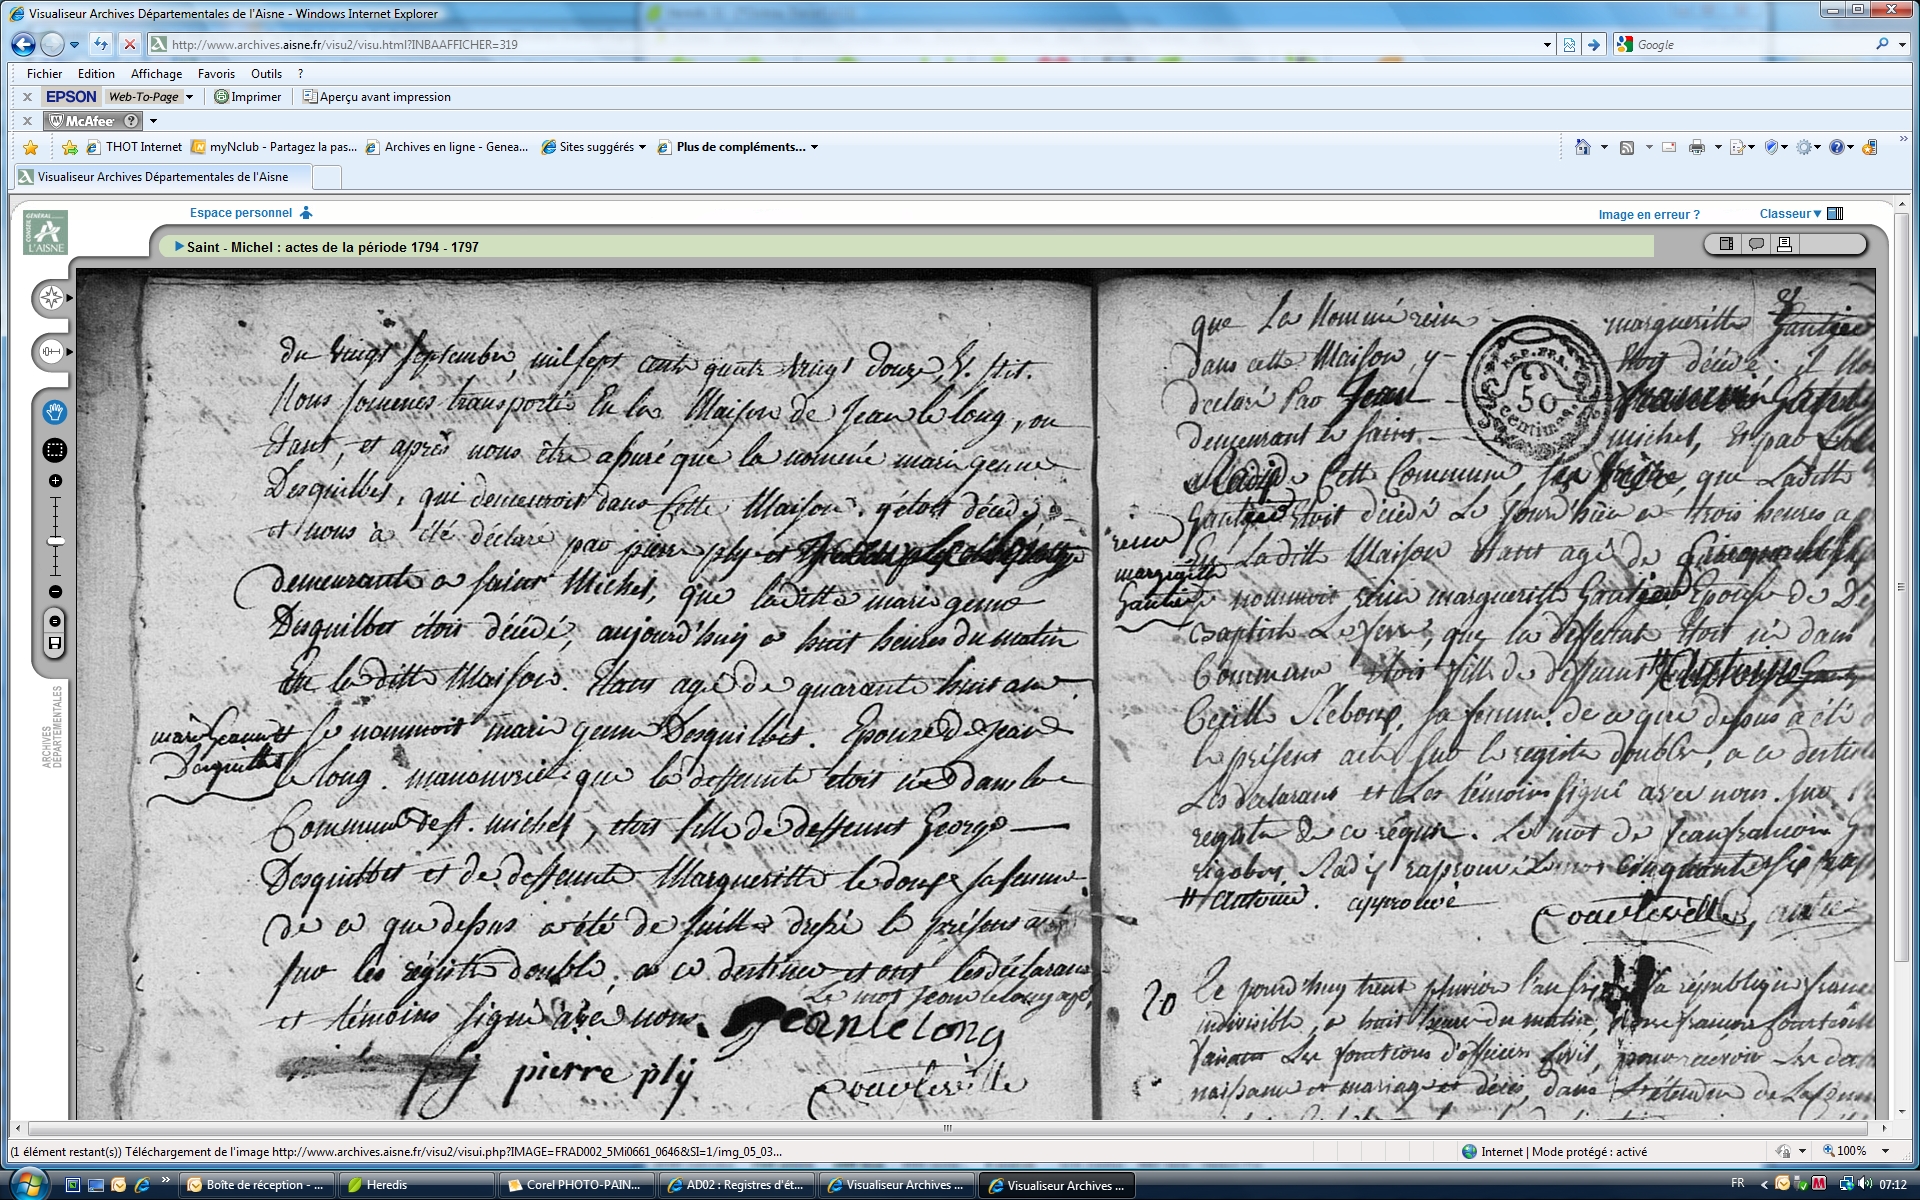 Visualiseur Archives Départementales de l'Aisne - Windows Internet Explorer
http://www.archives.aisne.fr/visu2/visu.html?INBAAFFICHER=319
Google
Fichier Edition Affichage Favoris Outils ?
x EPSON Web-To-Page Imprimer Aperçu avant impression
x McAfee ?
THOT Internet myNclub - Partagez la pas... Archives en ligne - Genea... Sites suggérés Plus de compléments...
Visualiseur Archives Départementales de l'Aisne
Espace personnel Image en erreur ? Classeur
CONSEIL GÉNÉRAL L'AISNE
Saint - Michel : actes de la période 1794 - 1797
ARCHIVES DÉPARTEMENTALES
du vingt septembre, mil sept cent quatre vingt douze, V. Stil.
Nous sommes transporté En la Maison de Jean le long, ou
Etant, et après nous être assuré que la nommé marie genne
Desquilbet, qui demeuroit dans Cette Maison, y étoit décédé
et nous à été déclaré par pierre ply et
demeurante a saint Michel, que laditte marie genne
Desquilbet étoit décédé, aujourd'huy a huit heures du matin
En laditte Maison. Etant agé de quarante huit ans
se nommoit marie genne Desquilbet. Epouse de Jean
marie Jeanne
Desquilbet
le long. manouvrie que la deffeunte étoit née dans la
Commune de st. michel, étoit fille de deffeunt George
Desquilbet et de deffeunte Margueritte le douze sa femme
de ce que dessus a été de suitte dressé le présens acte
sur les régistre double, a ce destinée et ont les déclarans
Le mot Jean le long
et témoins signé avec nous. Jean le long
pierre ply
Courteville
que La Nommé reine margueritte Gautier
dans cette Maison, y étoit décédé. il nous
déclaré Par Jean francois
demeurant a saint michel, Et par
REP. FRA.
50
centimes.
de Cette Commune, que Laditte
Gautier Etoit décédé Le Jourd'hier a trois heures
reine
margueritte
Gautier
En Laditte Maison Etant agé de
nommoit reine margueritte Gautier Epouse de
Baptiste Le ferré, que la deffeunte Etoit né dans
Commune étoit fille de deffeunt
Cecille sa femme. de ce que dessus à été
le présent acte sur le registre double, a ce destiné
Les déclarant et Les témoins signé avec nous. sur
registre de ce réquis. Le mot de Jean francois
raprouvé Le mot cinquante six
antoine. approuvé
Courteville,
20 Le jourd'huy trente pluviose l'an la république francaise
indivisible, a huit heure du matin,
faisant Les fonctions d'officier civil, pour recevoir Les
naissance et mariage et décès, dans L'étendue de La Commune
(1 élément restant(s)) Téléchargement de l'image http://www.archives.aisne.fr/visu2/visui.php?IMAGE=FRAD002_5Mi0661_0646&SI=1/img_05_03...
Internet | Mode protégé : activé 100%
Boîte de réception - ... Heredis Corel PHOTO-PAIN... AD02 : Registres d'ét... Visualiseur Archives ... Visualiseur Archives ... FR 07:12